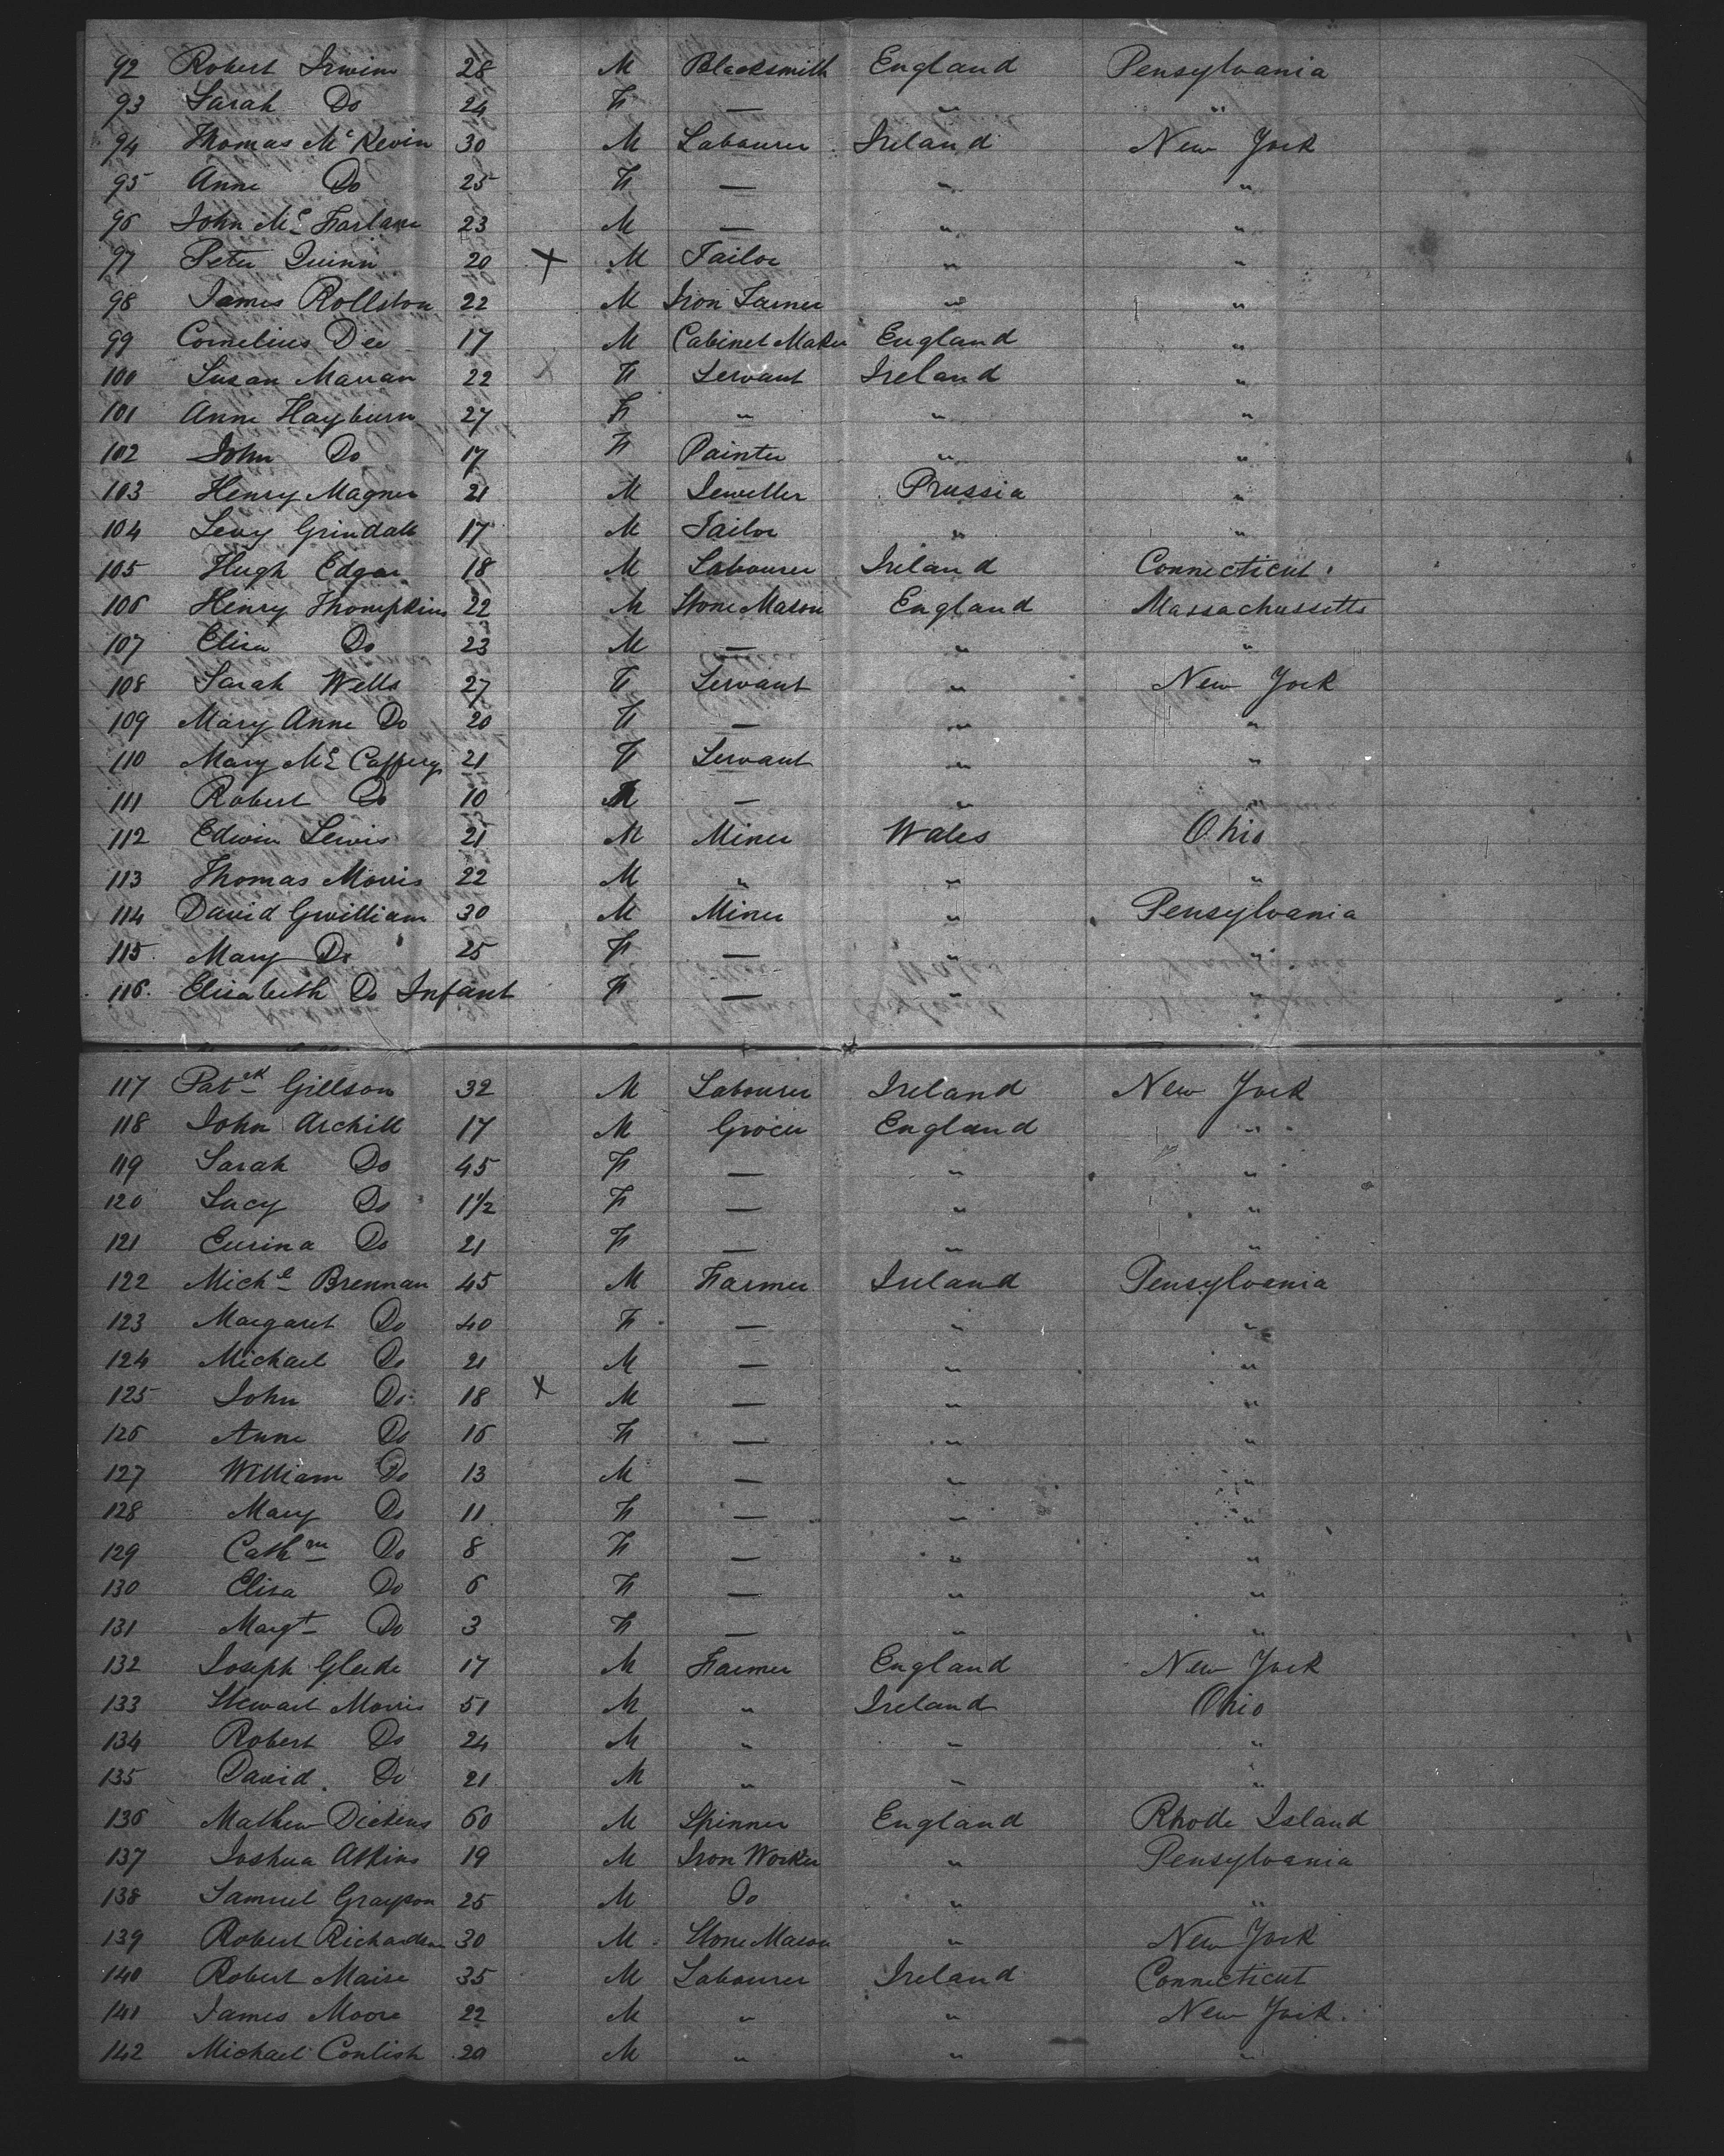 92 Robert Irwin 28 M Blacksmith England Pensylvania
93 Sarah Do 24 F — " "
94 Thomas McKevin 30 M Labourer Ireland New York
95 Anne Do 25 F — " "
96 John McFarlane 23 M — " "
97 Peter Quinn 20 X M Tailor " "
98 James Rollston 22 M Iron " "
99 Cornelius Dee 17 M Cabinet Maker England "
100 Susan Marian 22 X F Servant Ireland "
101 Anne Hayburn 27 F " " "
102 John Do 17 F Painter " "
103 Henry Magner 21 M Jeweller Prussia "
104 Levy Grindall 17 M Tailor " "
105 Hugh Edgar 18 M Labourer Ireland Connecticut
106 Henry Thompkins 22 M Stone Mason England Massachussetts
107 Eliza Do 23 M — " "
108 Sarah Wells 27 F Servant " New York
109 Mary Anne Do 20 F — " "
110 Mary McCaffery 21 F Servant " "
111 Robert Do 10 M — " "
112 Edwin Lewis 21 M Miner Wales Ohio
113 Thomas Morris 22 M " " "
114 David Gwilliam 30 M Miner " Pensylvania
115 Mary Do 25 F — " "
116 Elisabeth Do Infant F — " "
117 Patck Gillson 32 M Labourer Ireland New York
118 John Archill 17 M Grocer England "
119 Sarah Do 45 F — " "
120 Lucy Do 1½ F — " "
121 Eurina Do 21 F — " "
122 Michl Brennan 45 M Farmer Ireland Pensylvania
123 Margaret Do 40 F — " "
124 Michael Do 21 M — " "
125 John Do 18 X M — " "
126 Anne Do 16 F — " "
127 William Do 13 M — " "
128 Mary Do 11 F — " "
129 Cathne Do 8 F — " "
130 Eliza Do 6 F — " "
131 Margt Do 3 F — " "
132 Joseph Glede 17 M Farmer England New York
133 Stewart Morris 51 M " Ireland Ohio
134 Robert Do 24 M " " "
135 David Do 21 M " " "
136 Mathew Dickens 60 M Spinner England Rhode Island
137 Joshua Atkins 19 M Iron Worker " Pensylvania
138 Samuel Grayson 25 M Do " "
139 Robert Richardson 30 M Stone Mason " New York
140 Robert Maise 35 M Labourer Ireland Connecticut
141 James Moore 22 M " " New York
142 Michael Conlish 20 M " " "